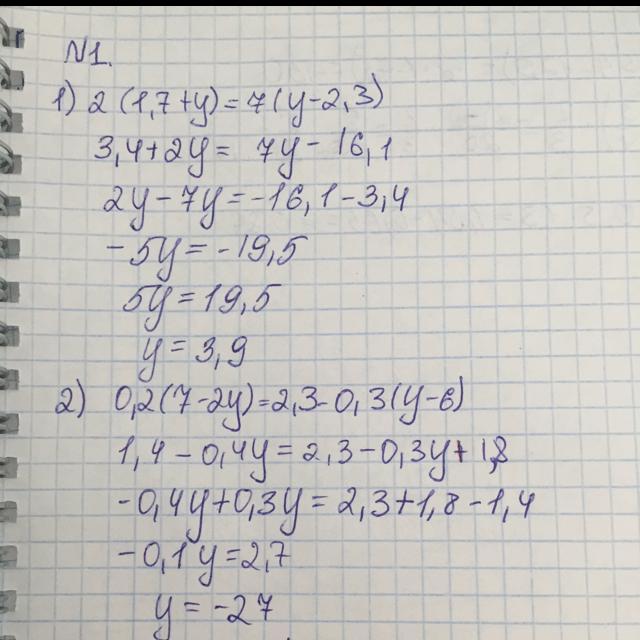 N1.
1) 2(1,7+y)=7(y-2,3)
3,4+2y= 7y-16,1
2y-7y=-16,1-3,4
-5y=-19,5
5y=19,5
y=3,9
2) 0,2(7-2y)=2,3-0,3(y-6)
1,4-0,4y=2,3-0,3y+1,8
-0,4y+0,3y=2,3+1,8-1,4
-0,1y=2,7
y=-27